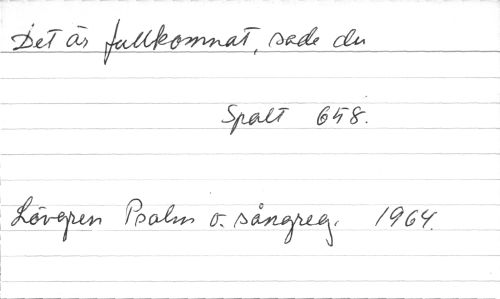 Det är fullkomnat, sade du
Spalt 658.
Lövgren Psalm o. sångreg. 1964.